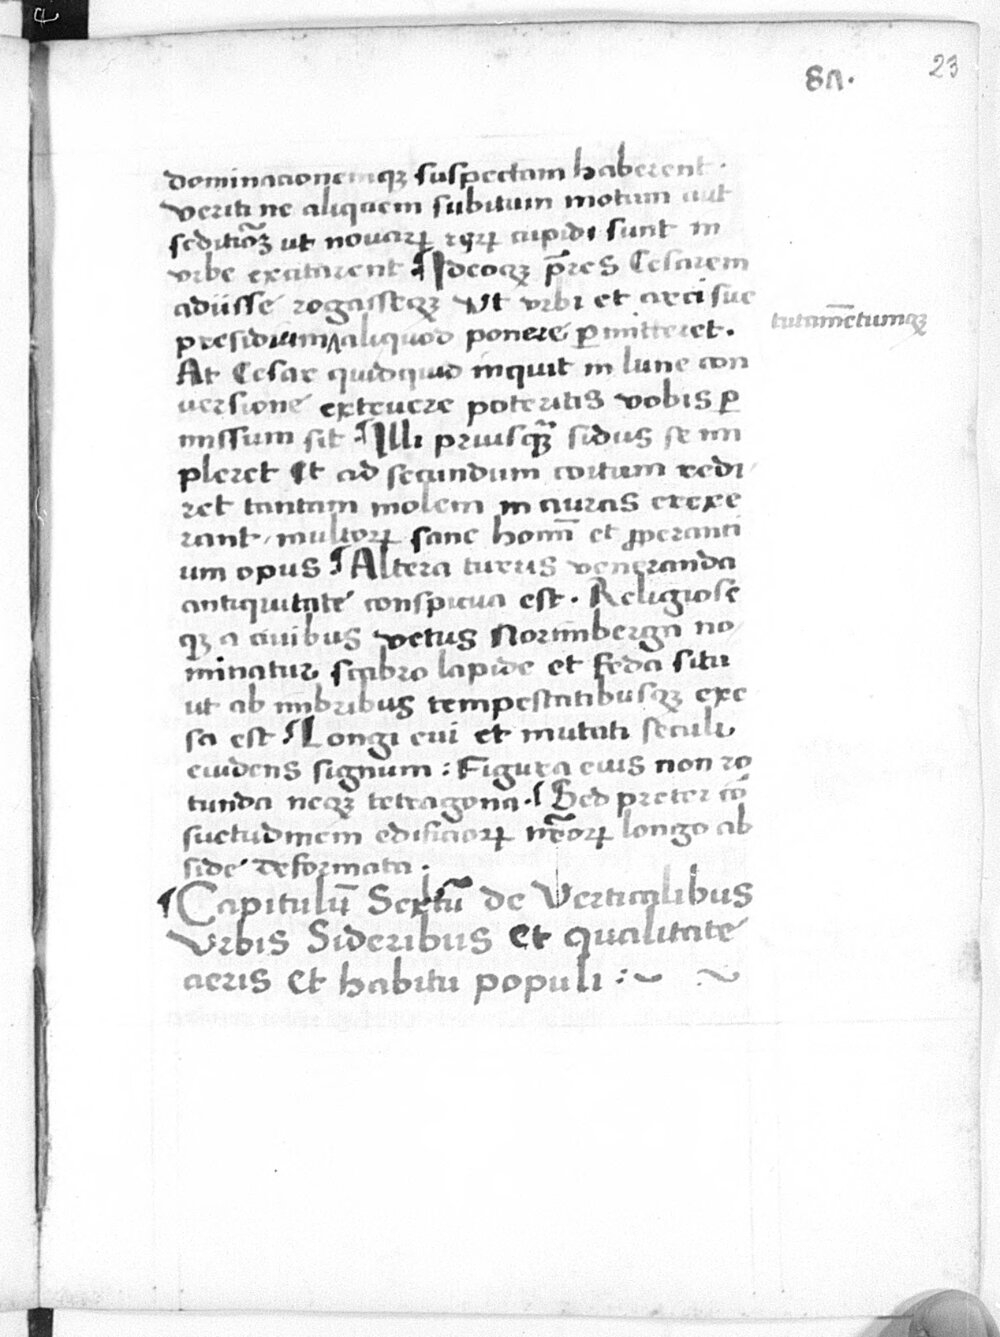 8n.
23
dominacionemqꝫ suspectam haberent .
veriti ne aliquem subitum motum aut
seditioẽꝫ ut nouaꝝ reꝝ cupidi sunt in
vrbe excitarent ¶ Ideoqꝫ p̃res Cesarem
adiisse rogasseqꝫ Vt vrbi et arci sue
presidium ʌ aliquod ponere ꝑmitteret .
tutam̄etumqꝫ
At Cesar quidquid inquit in lune con
uersione extruere poteritis vobis ꝑ
missum sit ¶ Illi priusqꝫ̃ sidus se im
pleret Et ad secundum coitum redi
ret tantam molem in auras erexe
rant / multoꝝ sane homī et ꝓperanti
um opus ¶ Altera turris veneranda
antiquitate conspicua est . Religiose
qꝫ a ciuibus vetus Norimberga no
minatur scabro lapide et feda situ
ut ab imbribus tempestatibusqꝫ exe
sa est ¶ Longi eui et mutati seculi
euidens signum : Figura eius non ro
tunda neqꝫ tetragona . ¶ Sed preter cō
suetudinem edificioꝝ nr̃oꝝ longo ab
side deformata .
¶ Capitulū Sextū de Verticalibus
Vrbis Sideribus et qualitate
aeris Et habitu populi :~ ~